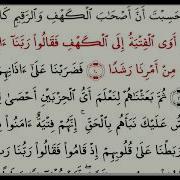 حَسِبْتَ أَنَّ أَصْحَٰبَ ٱلْكَهْفِ وَٱلرَّقِيمِ كَا
أَوَى ٱلْفِتْيَةُ إِلَى ٱلْكَهْفِ فَقَالُوا۟ رَبَّنَآ ءَا
مِنْ أَمْرِنَا رَشَدًا ١٠ فَضَرَبْنَا عَلَىٰٓ ءَاذَانِهِ
ثُمَّ بَعَثْنَٰهُمْ لِنَعْلَمَ أَىُّ ٱلْحِزْبَيْنِ أَحْصَىٰ
عَلَيْكَ نَبَأَهُم بِٱلْحَقِّ ۚ إِنَّهُمْ فِتْيَةٌ ءَامَنُوا۟
رَبَطْنَا عَلَىٰ قُلُوبِهِمْ إِذْ قَامُوا۟ فَقَالُوا۟ رَبُّنَا